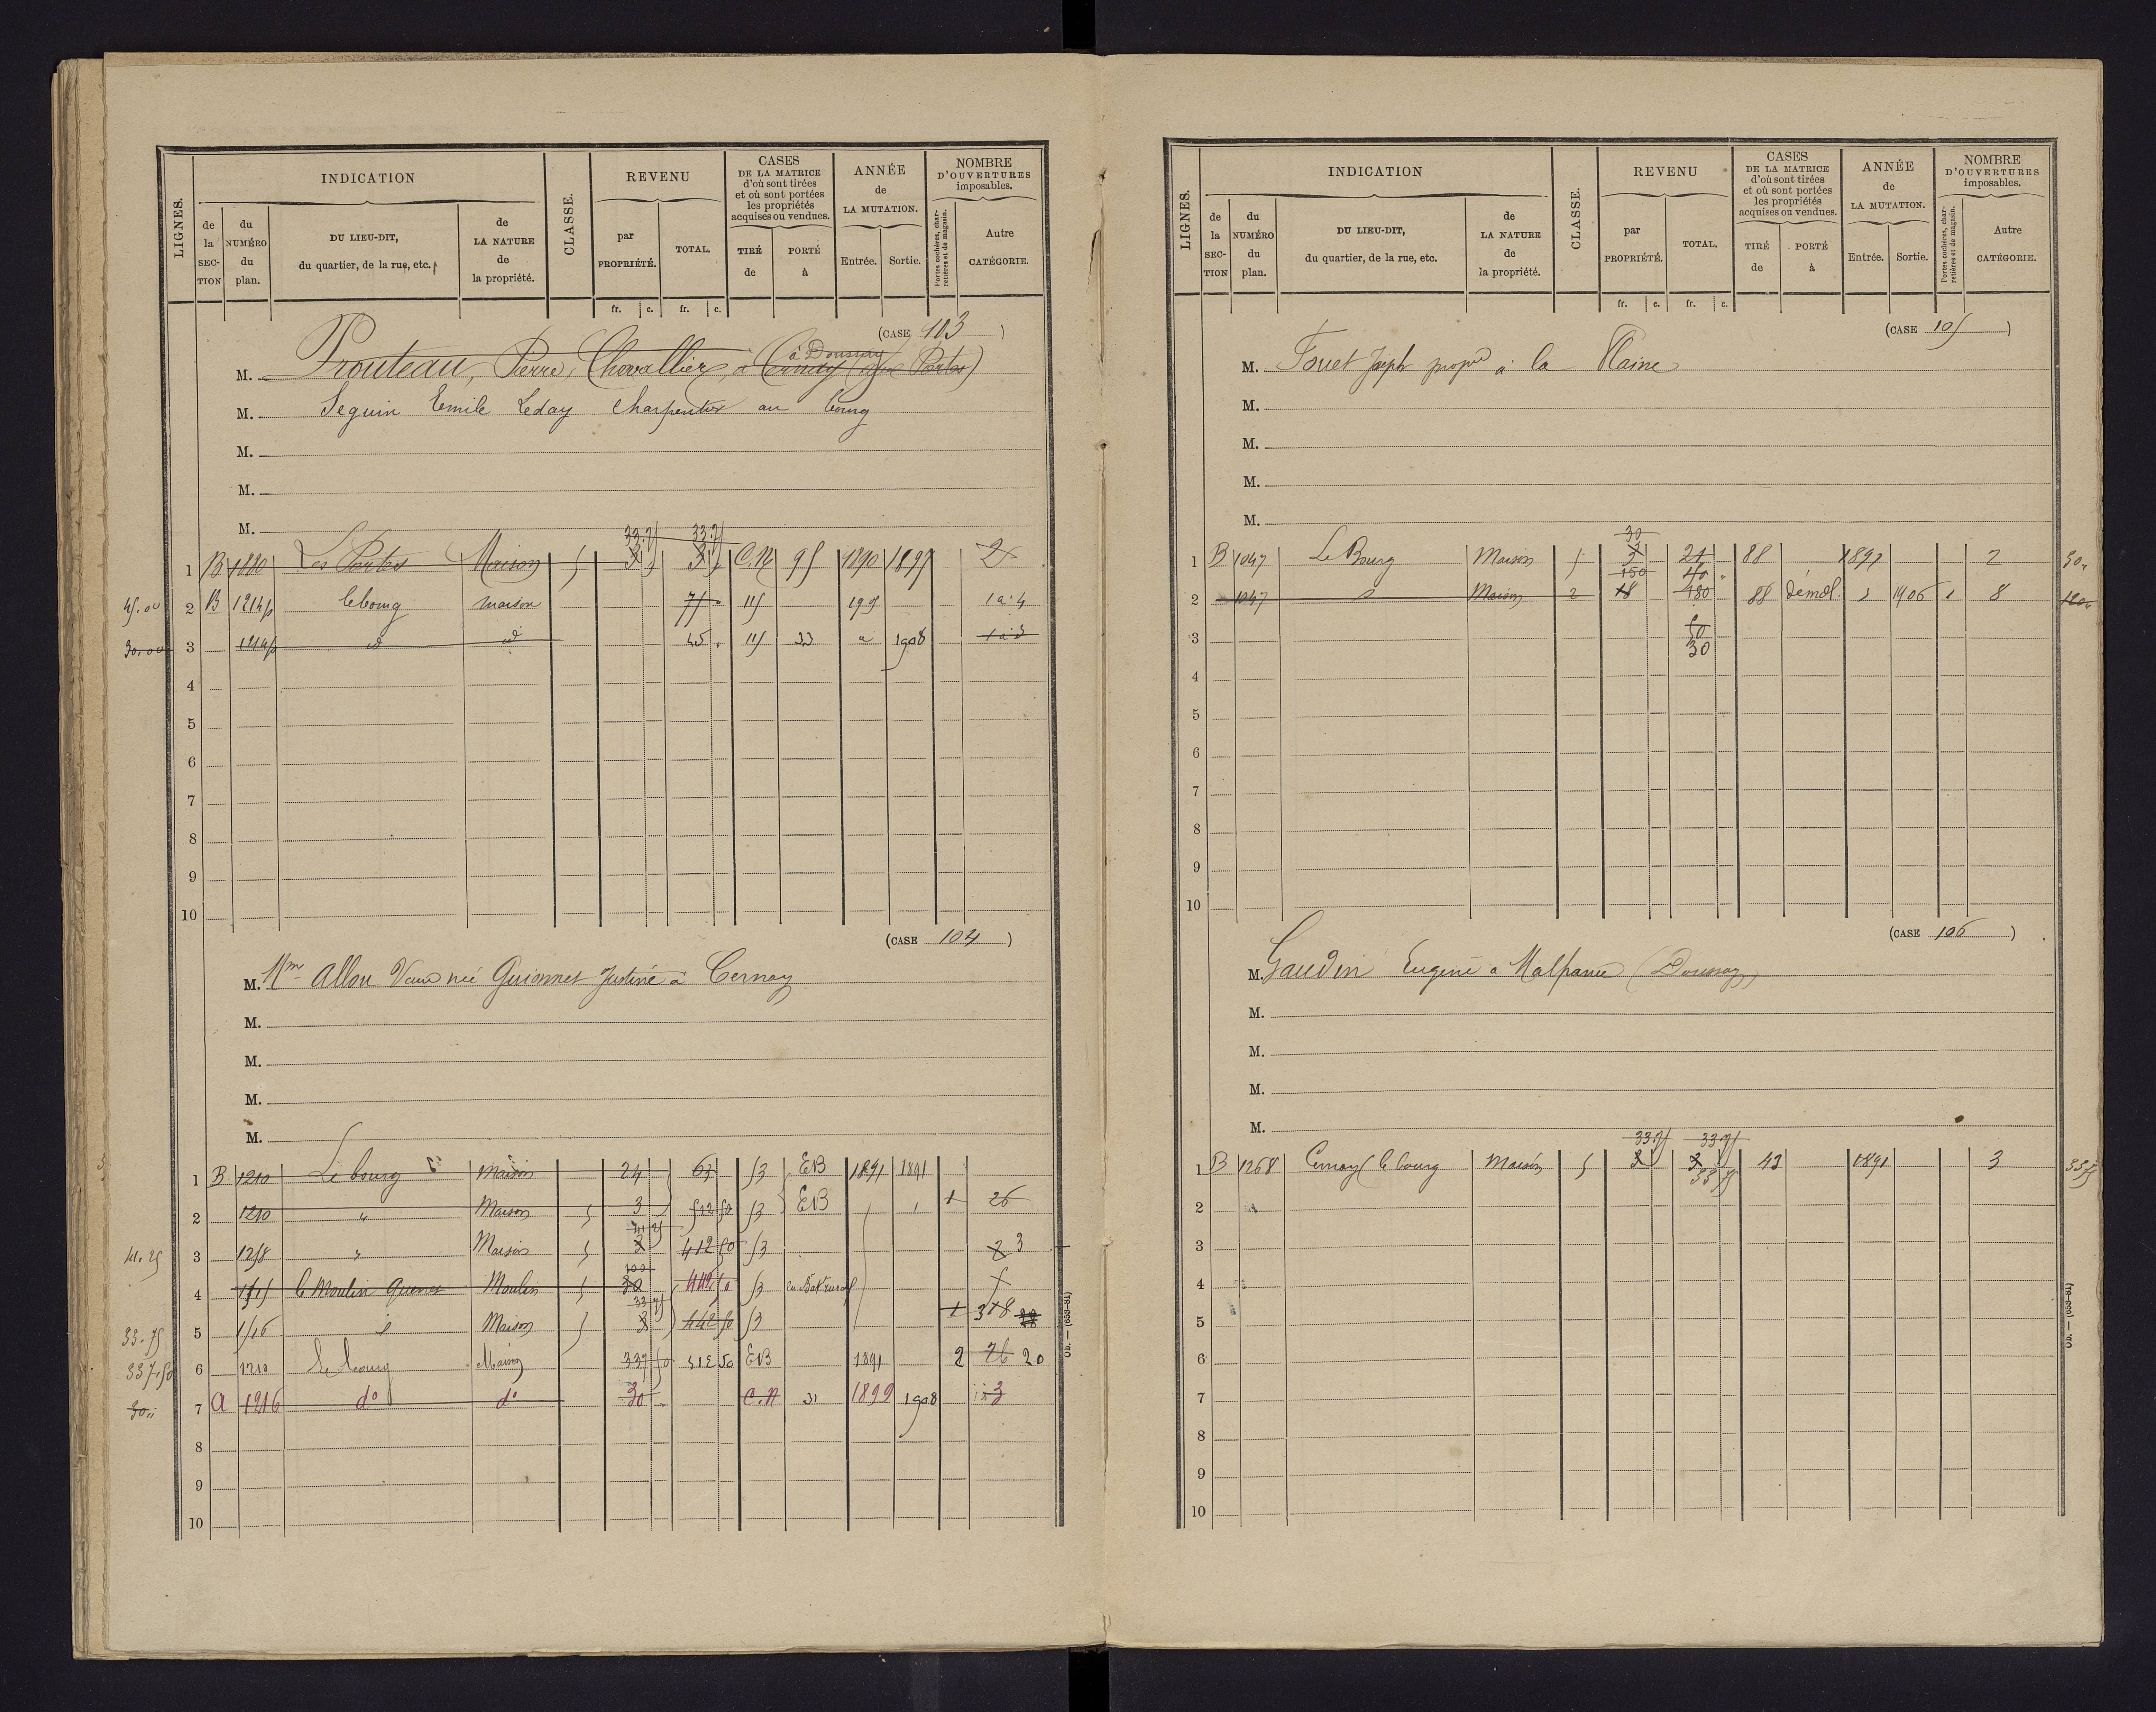 LIGNES.
INDICATION
de la SECTION
du NUMÉRO du plan.
DU LIEU-DIT, du quartier, de la rue, etc.
de LA NATURE de la propriété.
CLASSE.
REVENU
par PROPRIÉTÉ.
TOTAL.
CASES DE LA MATRICE d'où sont tirées et où sont portées les propriétés acquises ou vendues.
TIRÉ de
PORTÉ à
ANNÉE de LA MUTATION.
Entrée. Sortie.
NOMBRE D'OUVERTURES imposables.
Portes cochères, charretières et de magasin.
Autre CATÉGORIE.
fr. c. fr. c.
(CASE 103)
M. Prouteau, Pierre, Chevallier, à Cernay (Les Portes)
à Doussay
M. Seguin Emile Leday charpentier au bourg
M.
M.
M.
33.75 33.75
1 B 1880 Les Portes Maison 5 3 3 C.N 95 1890 1897 2
45.00 2 B 1214p le bourg maison 75 115 1 à 4
30.00 3 1214p d d 45 115 33 1908 1 à 3
4
5
6
7
8
9
10
(CASE 104)
M. Mme Allou Veuve née Guionnet Justine à Cernay
M.
M.
M.
M.
1 B 1210 Le bourg maison 24 63 53 EB 1891 1891
2 1210 " Maison 5 3 512 50 53 EB 1 26
41 25
41.25 3 1258 " Maison 5 3 412 50 53 2 3
100
4 1515 le Moulin Maulin 5 442 50 53
33 75
33.75 5 1516 d Maison 5 3 442 50 53 1 3 18
337.50 6 1210 Le bourg Maison 337 50 512 50 EB 1891 2 26 20
30" 7 A 1216 do do 30 C.N 31 1899 1908 1 à 3
8
9
10
Ob. — (653-81)
LIGNES.
INDICATION
de la SECTION
du NUMÉRO du plan.
DU LIEU-DIT, du quartier, de la rue, etc.
de LA NATURE de la propriété.
CLASSE.
REVENU
par PROPRIÉTÉ.
TOTAL.
CASES DE LA MATRICE d'où sont tirées et où sont portées les propriétés acquises ou vendues.
TIRÉ de
PORTÉ à
ANNÉE de LA MUTATION.
Entrée. Sortie.
NOMBRE D'OUVERTURES imposables.
Portes cochères, charretières et de magasin.
Autre CATÉGORIE.
fr. c. fr. c.
(CASE 105)
M. Fouet Joseph propre à la Plaine
M.
M.
M.
M.
30
1 B 1047 Le Bourg Maison 5 3 21 88 1891 2 30
150 40
2 1047 d Maison 2 18 180 88 démol. 1906 1 8 120
3 30
4
5
6
7
8
9
10
(CASE 106)
M. Gaudin Eugène à Malfanne (Doussay)
M.
M.
M.
M.
33.75 33.75
1 B 1268 Cernay le bourg Maison 5 3 3 43 1891 3 33.75
33 75
2
3
4
5
6
7
8
9
10
Ob. — (653-81)